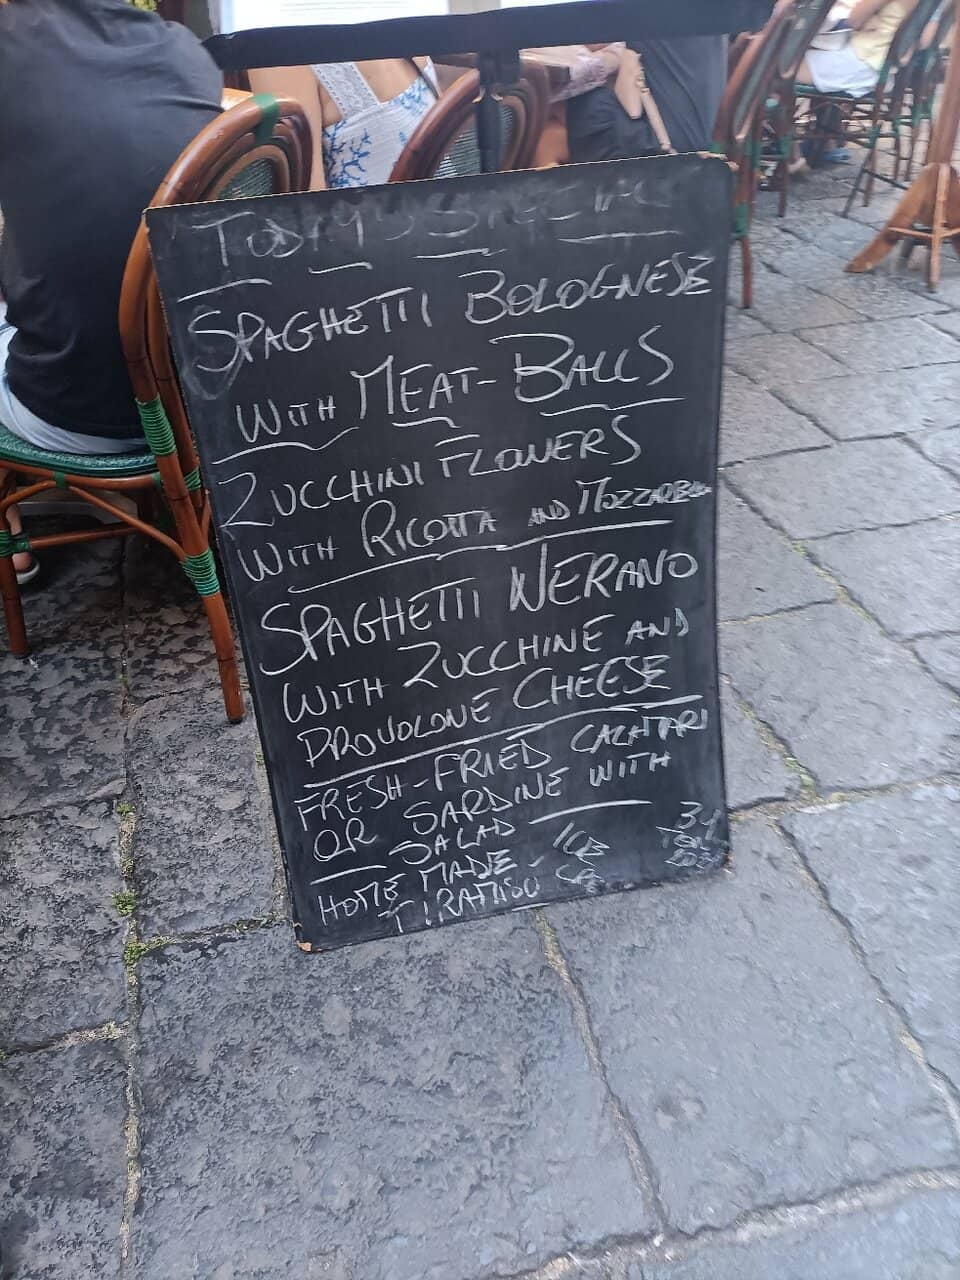 TODAY'S SPECIAL
SPAGHETTI BOLOGNESE
WITH MEAT-BALLS
ZUCCHINI FLOWERS
WITH RICOTTA AND MOZZARELLA
SPAGHETTI NERANO
WITH ZUCCHINE AND
PROVOLONE CHEESE
FRESH-FRIED CALAMARI
OR SARDINE WITH
SALAD
HOME MADE - ICE
TIRAMISU